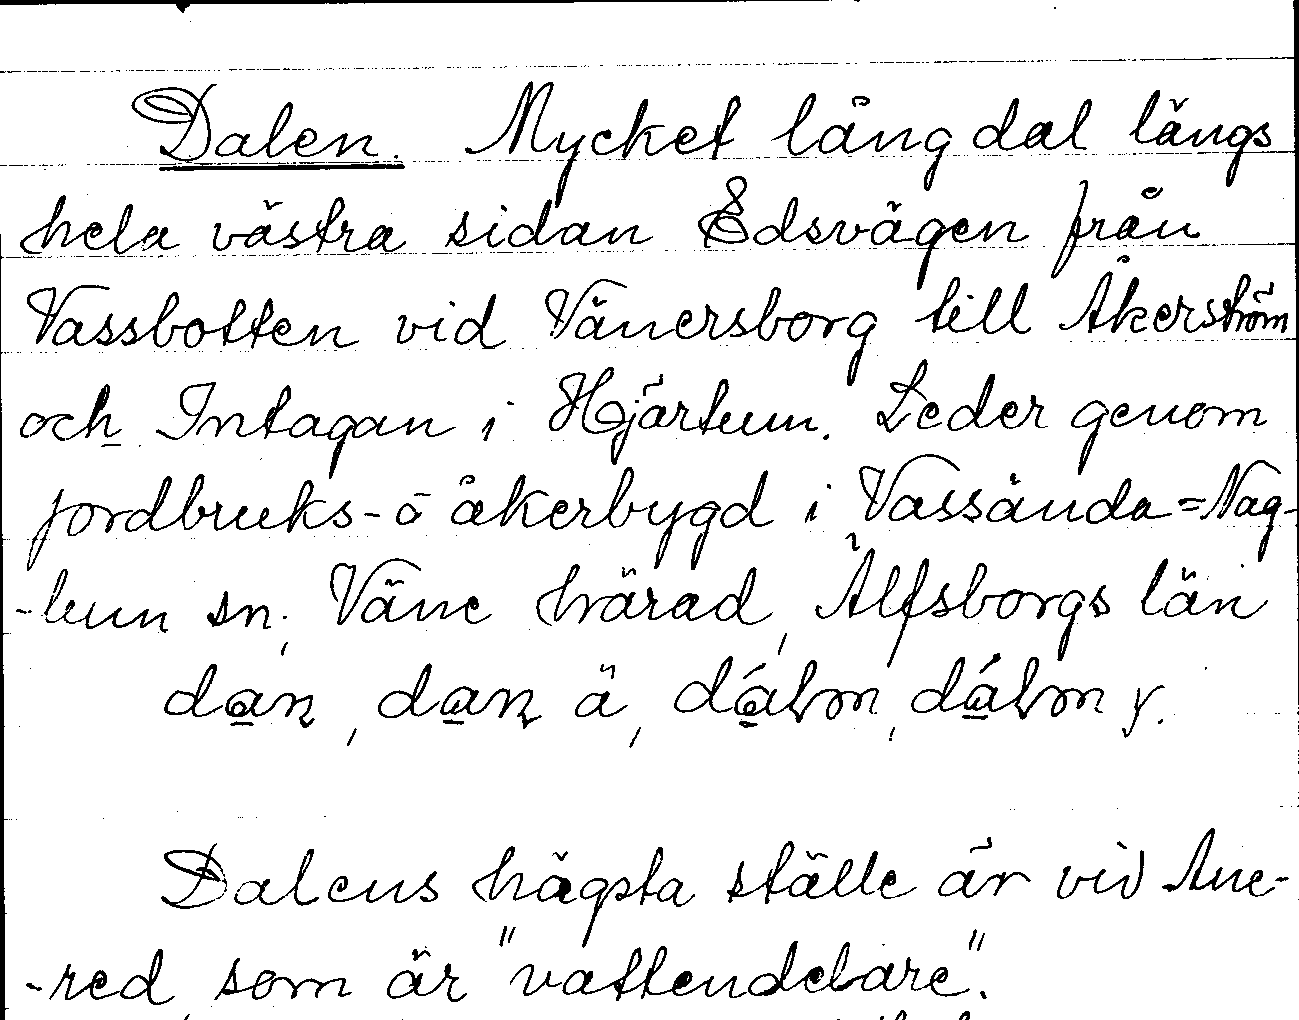 Dalen. Mycket lång dal längs
hela västra sidan Edsvägen från
Vassbotten vid Vänersborg till Åkerström
och Intagan i Hjärtum. Leder genom
jordbruks- o åkerbygd i Vassända=Nag-
-lum sn, Väne härad, Älfsborgs län
dan, dan ä, dálm, dálm y.
Dalens högsta ställe är vid Ane-
-red, som är "vattendelare".